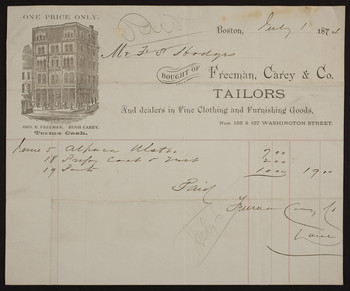 ONE PRICE ONLY.
Boston, July 1 187
Mr F. S. Hodges
BOUGHT OF Freeman, Carey & Co.
TAILORS
And dealers in Fine Clothing and Furnishing Goods,
Nos. 155 & 157 WASHINGTON STREET.
GEO. E. FREEMAN. HUGH CAREY.
Terms Cash.
June 5 Alpaca 7.00
18 Coat & Vest 2.00
19 10.00 19.00
Paid
Freeman Carey & Co